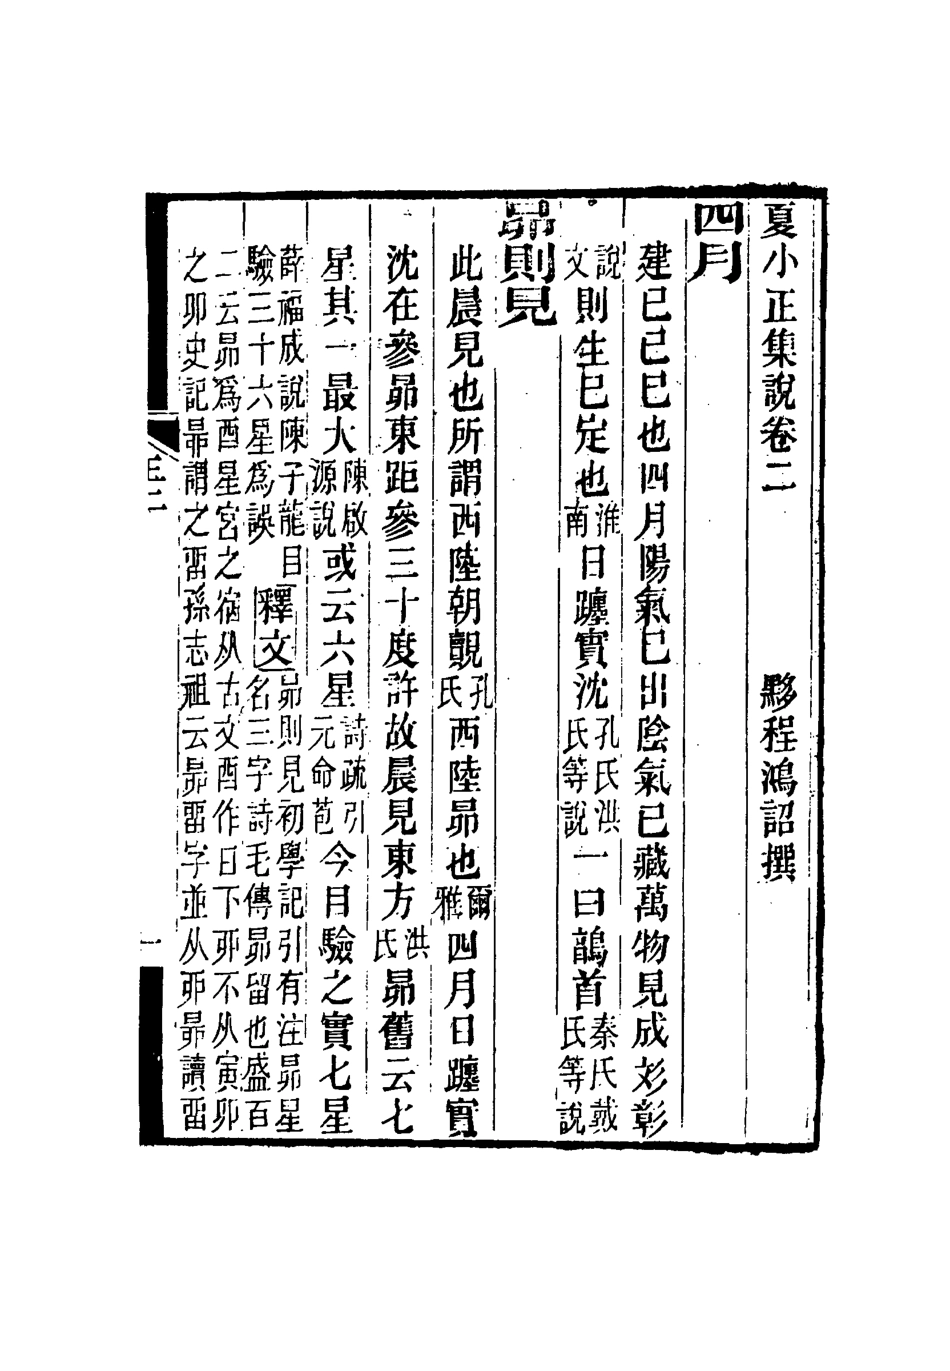 夏小正集說卷二　黟程鴻詔撰
四月
建巳巳巳也四月陽氣巳出陰氣巳藏萬物見成彣彰
說文則生巳定也淮南日躔實沈孔氏洪氏等說一曰鶉首秦氏戴氏等說
昴則見
此晨見也所謂西陸朝覿孔氏西陸昴也爾雅四月日躔實
沈在參昴東距參三十度許故晨見東方洪氏昴舊云七
星其一最大陳啟源說或云六星詩疏引元命苞今目驗之實七星
薛福成說陳子龍目驗三十六星爲誤釋文昴則見初學記引有注昴星名三字詩毛傳昴留也盛百
二云昴爲酉星宮之宿从古文酉作日下丣不从寅卯之卯史記昴謂之畱孫志祖云昴畱字並从丣昴讀畱
正二
一